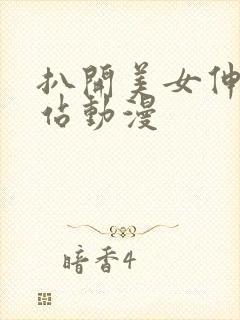 扒開美女伸
佔動漫
暗香4